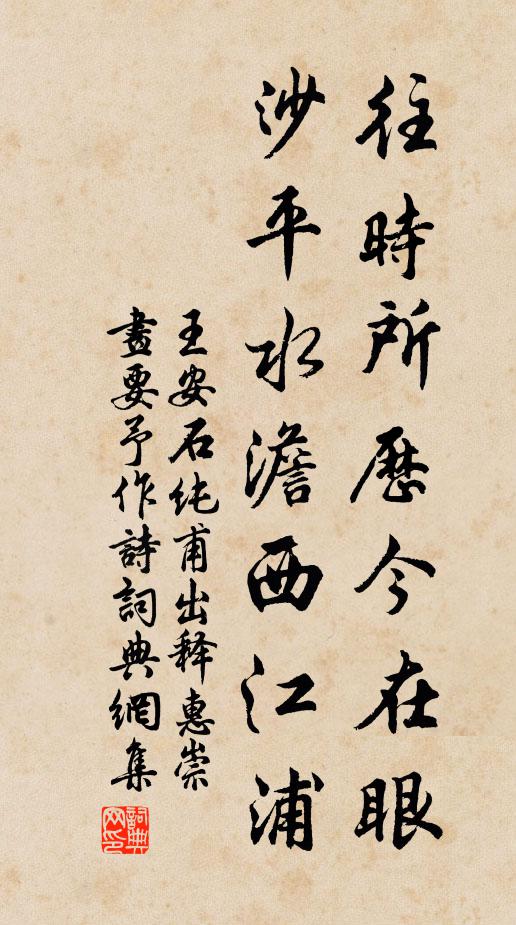 往時所歷今在眼
沙平水澹西江浦
王安石纯甫出释惠崇
畫要予作詩詞典網集
詞典网印